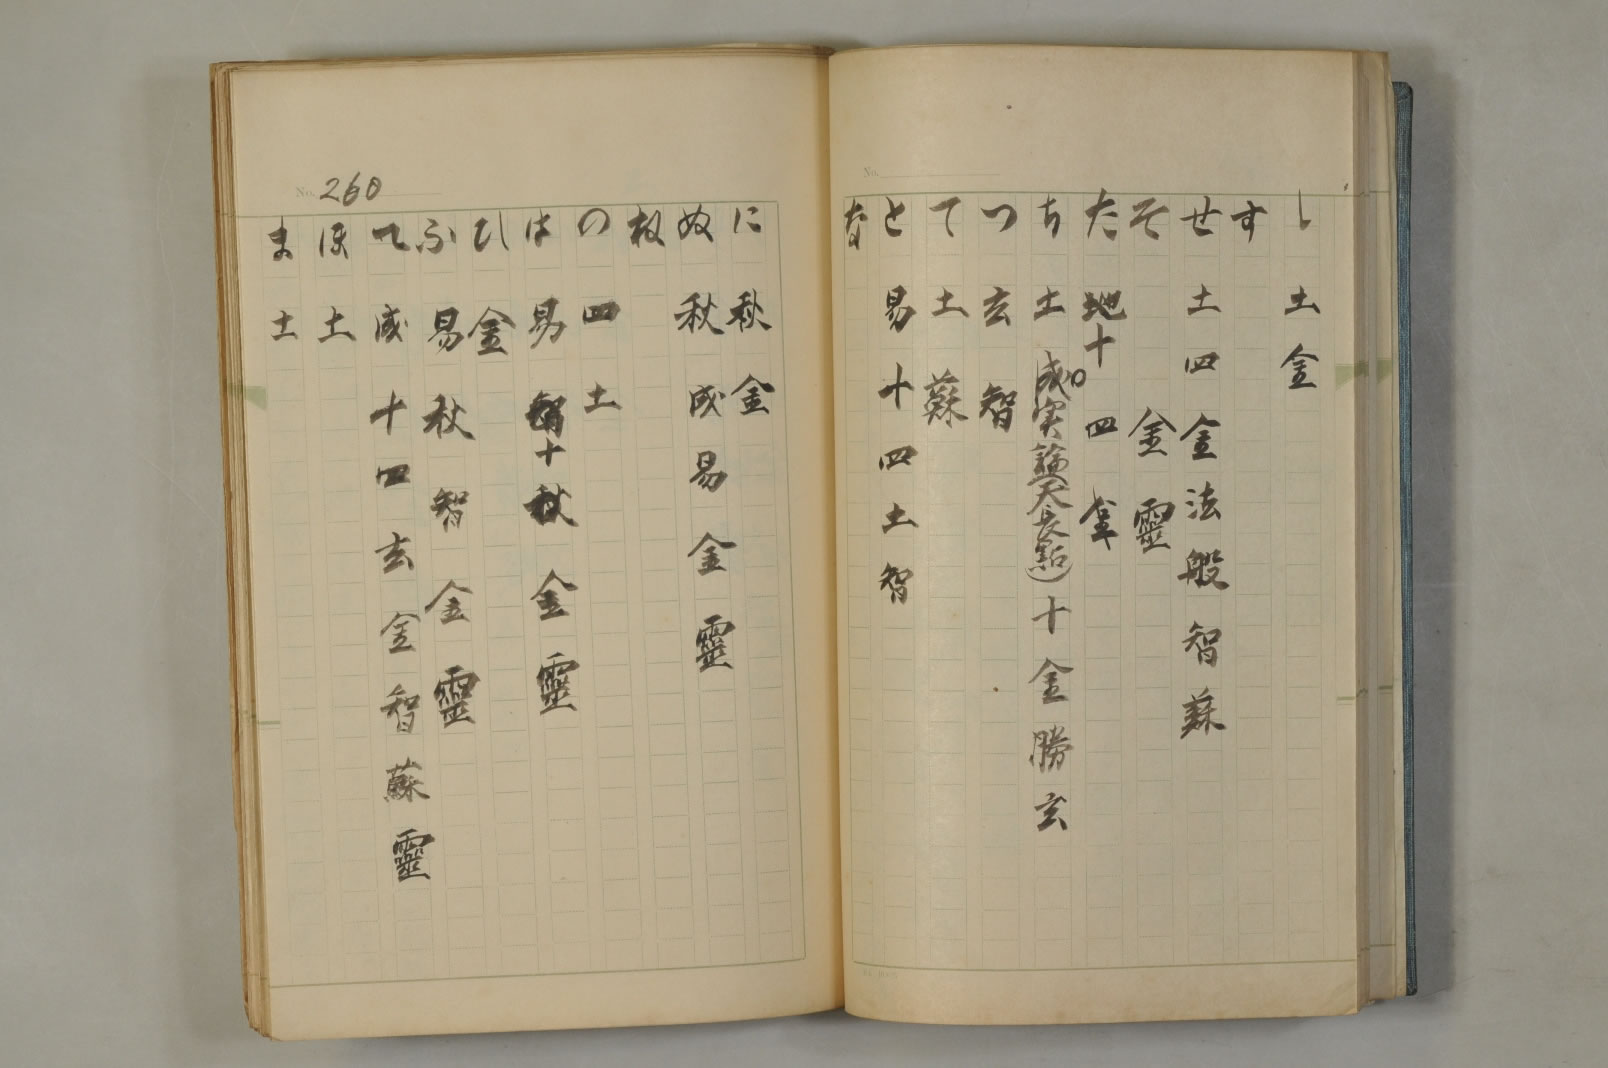 し 土 金
す
せ 土 四 金 法 般 智 蘇
そ 金 靈
た 地 十 四
ち 土 成(実論天長點) 十 金 勝 玄
つ 玄 智
て 土 蘇
と 易 十 四 土 智
な
No.
No. 260
に 秋 金
ぬ 秋 成 易 金 靈
ね
の 四 土
は 易 十 秋 金 靈
ひ 金
ふ 易 秋 智 金 靈
へ 成 十 四 玄 金 智 蘇 靈
ほ 土
ま 土